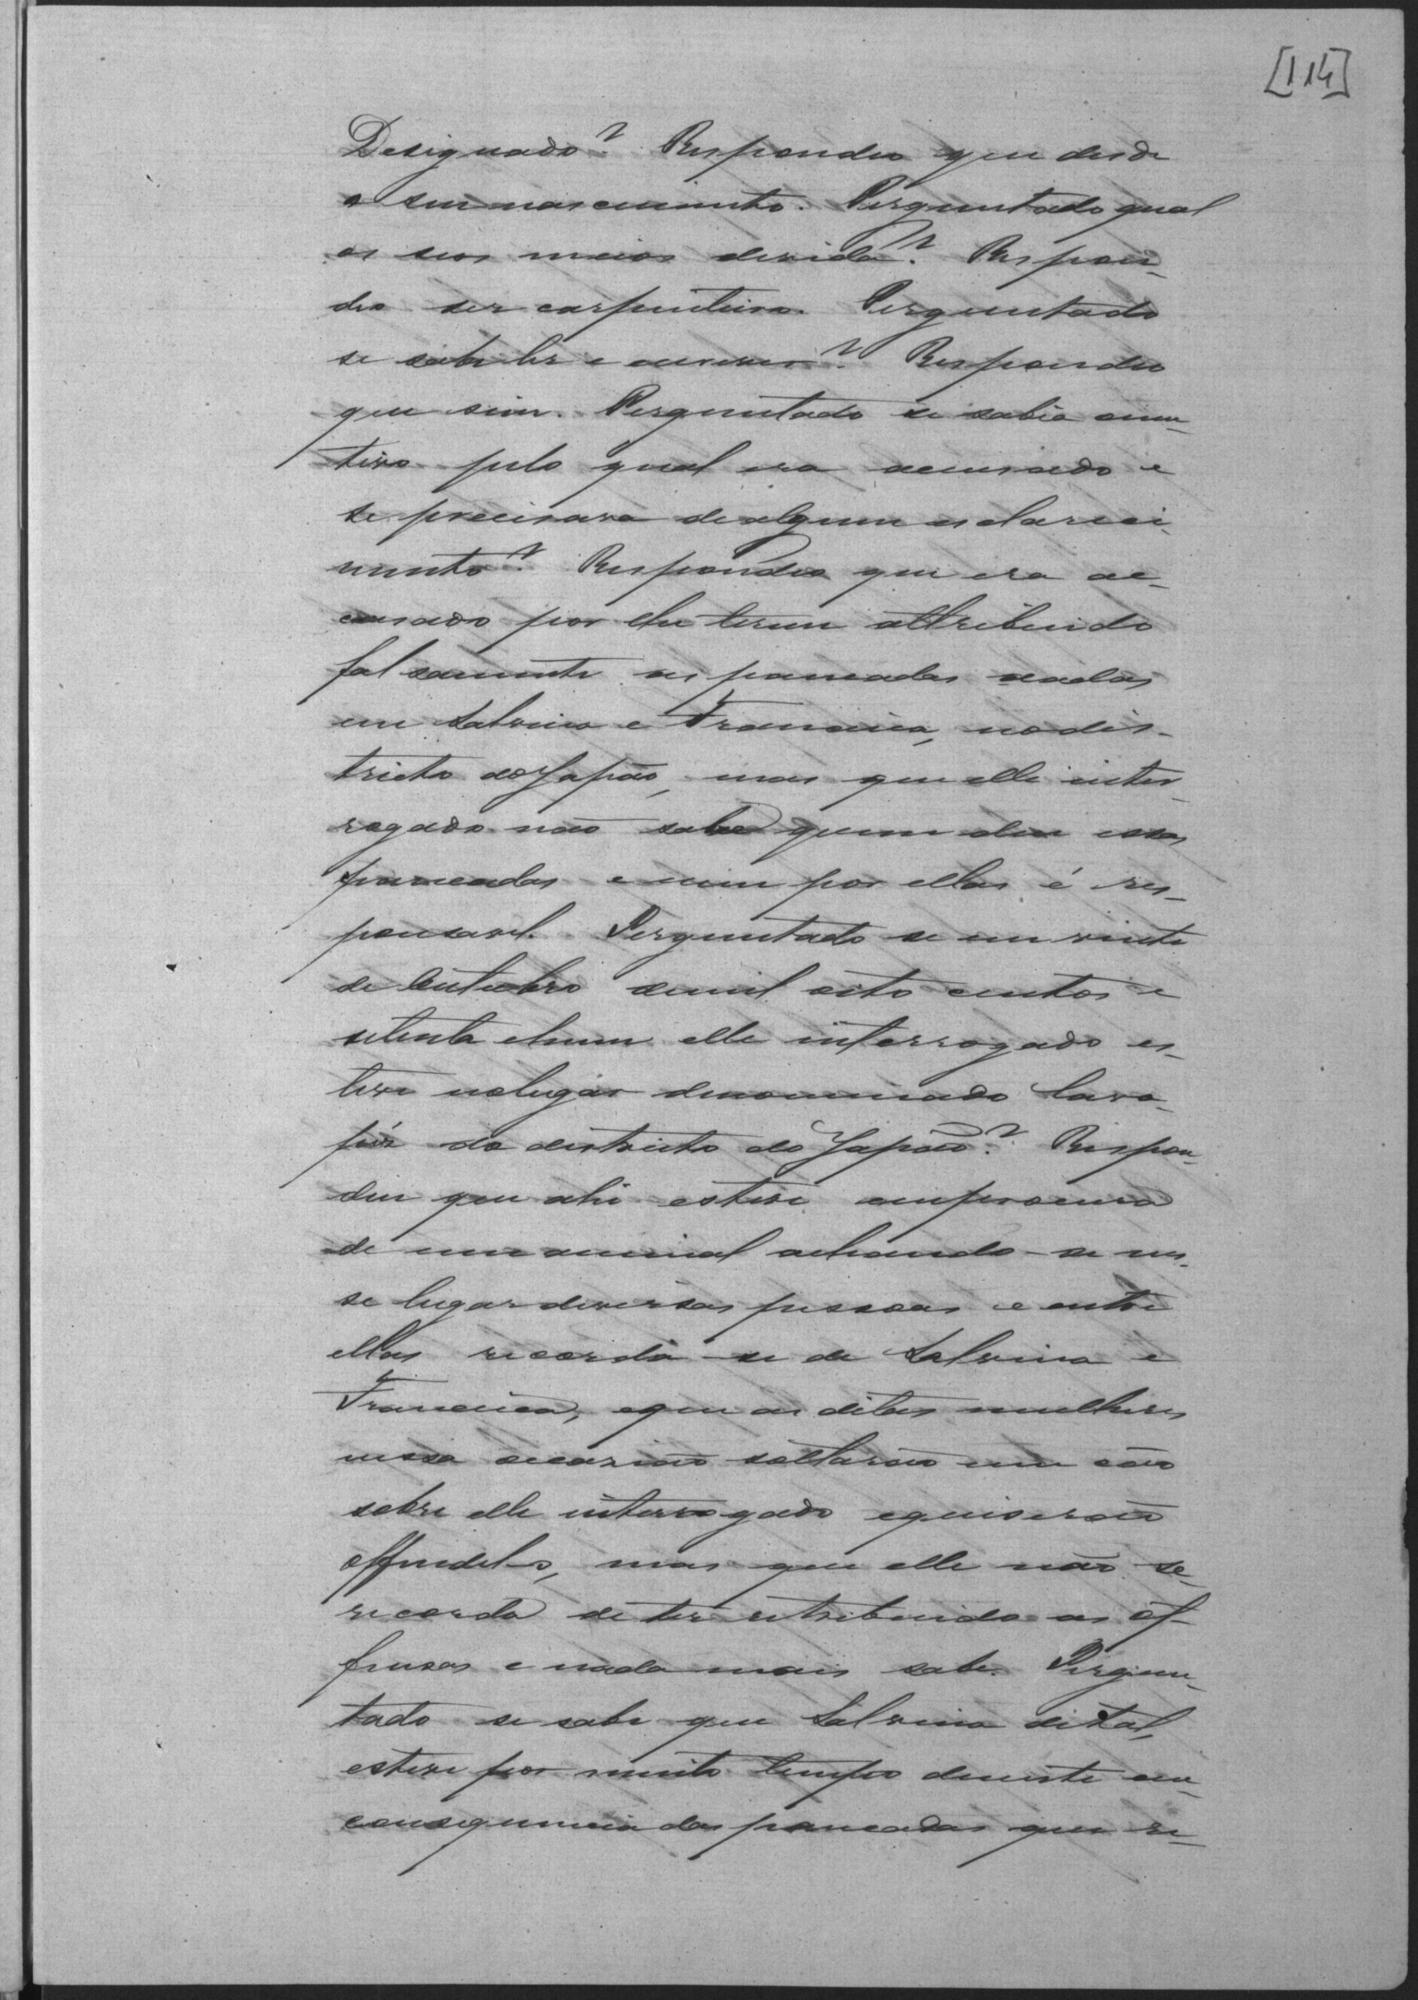 [114]
Designado? Respondeo que desde
o seu nascimento. Perguntado qual
os seos meios de vida? Respon-
deo ser carpinteiro. Perguntado
se sabe ler e escrever? Respondeo
que sim. Perguntado se sabia o mo-
tivo pelo qual era accusado e
se precisava de algum esclareci-
mento? Respondeo que era ac-
cusado por lhe terem attribuido
falsamente as pancadas dadas
em Salvina e Francisca, no dis-
tricto do Japão, mas que elle inter-
rogado não sabe quem deu essas
pancadas e nem por ellas é res-
ponsavel. Perguntado se em vinte
de Outubro de mil oito centos e
setenta e hum elle interrogado es-
teve no lugar denominado Lava-
pés do districto do Japão? Respon-
deu que ahi esteve em procura
de um animal achando-se nes-
se lugar diversas pessoas e entre
ellas recorda-se de Salvina e
Francisca, e que as ditas mulheres
nessa occasião soltarão um cão
sobre elle interrogado e quiserão
offendel-o, mas que elle não se
recorda de ter retribuido as of-
fensas e nada mais sabe. Pergun-
tado se sabe que Salvina de tal,
esteve por muito tempo doente em
consequencia das pancadas que re-